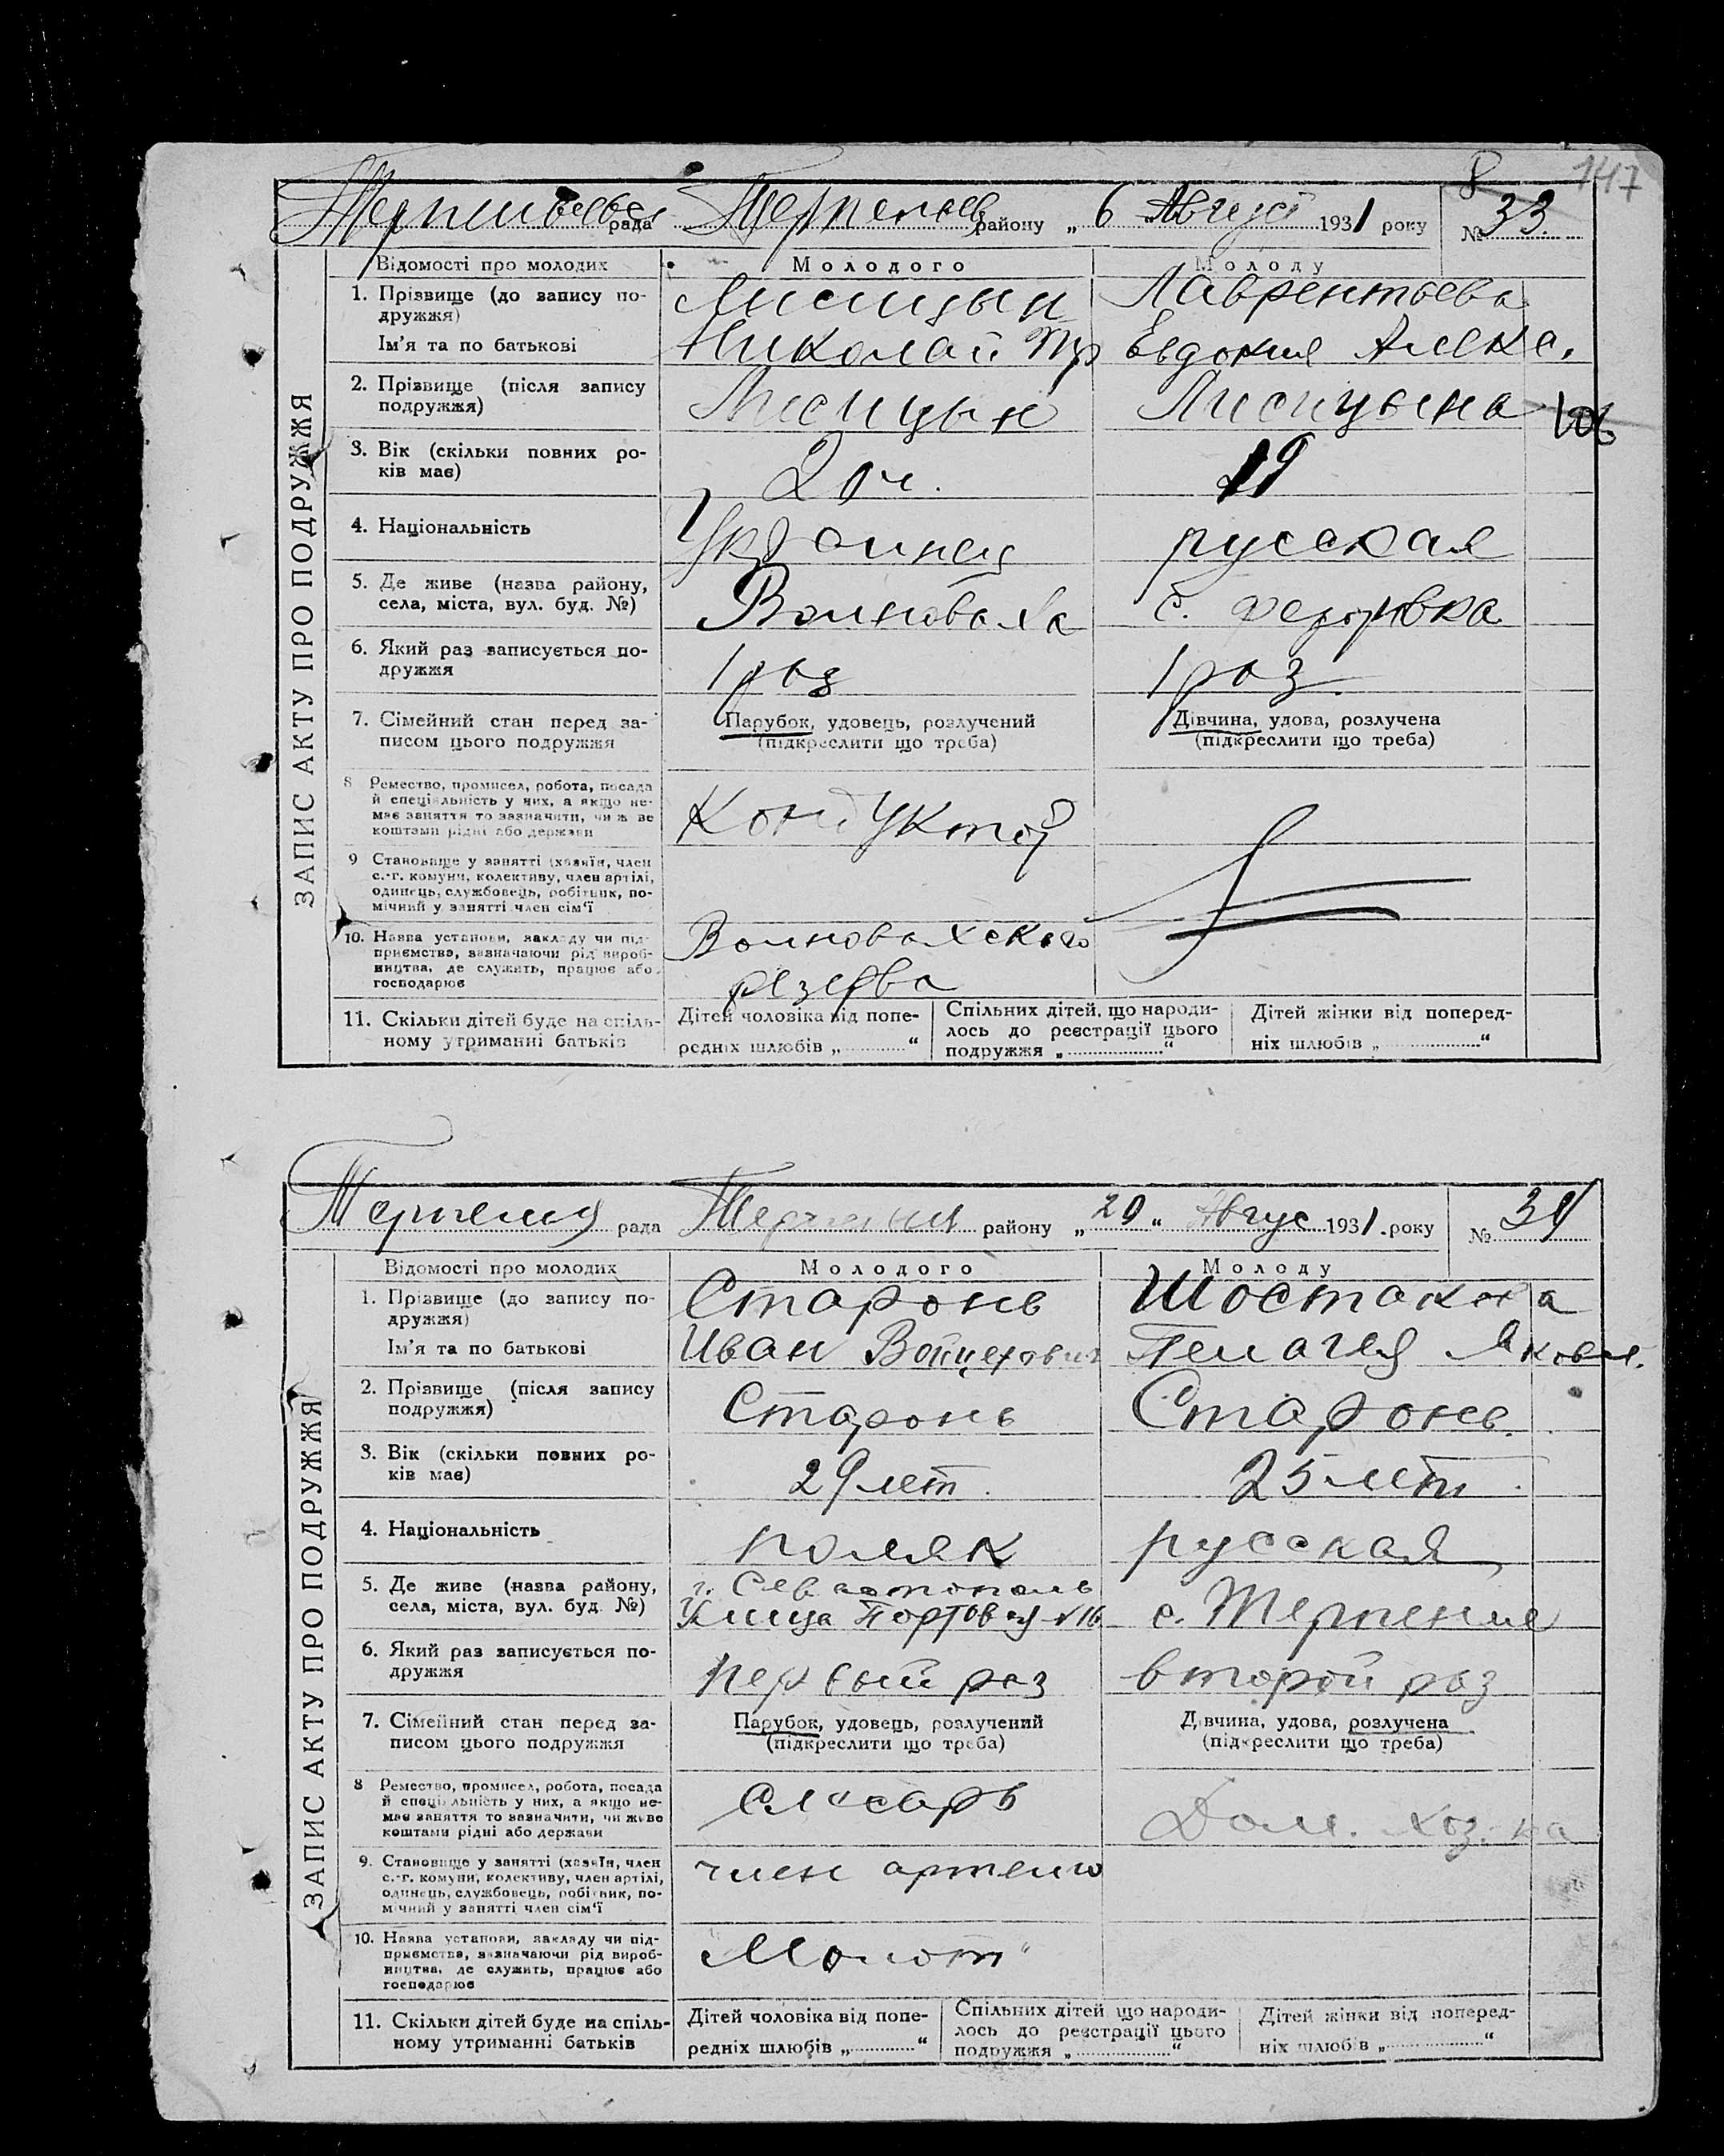 8 147
рада района „ 6 “ Август 1931 року № 33.
ЗАПИС АКТУ ПРО ПОДРУЖЖЯ
Відомості про молодих Молодого Молоду
1. Прізвище (до запису по-
дружжя)
Лисицын Лаврентьева
Ім'я та по батькові Николай Евдокия Алекс.
2. Прізвище (після запису
подружжя)
Лисицын Лисицына
3. Вік (скільки повних ро-
ків має)
19
4. Національність Украинец русская
5. Де живе (назва району,
села, міста, вул. буд. №)
Волноваха с. Федоровка
6. Який раз записується по-
дружжя
1 раз 1 раз.
7. Сімейний стан перед за-
писом цього подружжя
Парубок, удовець, розлучений
(підкреслити що треба)
Дівчина, удова, розлучена
(підкреслити що треба)
8 Ремество, промисел, робота, посада
й спеціяльність у них, а якщо не-
має заняття то зазначити, чи живе
коштами рідні або держави
Кондуктор
9 Становище у занятті (хазяїн, член
с.-г. комуни, колективу, член артілі,
одинець, службовець, робітник, по-
мічний у занятті член сім'ї
10. Назва установи, закладу чи під-
приємства, зазначаючи рід вироб-
ництва, де служить, працює або
господарює
Волновахского
резерва
11. Скільки дітей буде на спіль-
ному утриманні батьків
Дітей чоловіка від попе-
редніх шлюбів „ “
Спільних дітей, що народи-
лось до реєстрації цього
подружжя „ “
Дітей жінки від поперед-
ніх шлюбів „ “
рада району „ 20 “ Авгус 1931. року № 34
ЗАПИС АКТУ ПРО ПОДРУЖЖЯ
Відомості про молодих Молодого Молоду
1. Прізвище (до запису по-
дружжя)
Старонь
Ім'я та по батькові Иван Войцехович Пелагея Яковл.
2. Прізвище (після запису
подружжя)
Старонь Старонь.
3. Вік (скільки повних ро-
ків має)
29 лет. 25 лет.
4. Національність поляк русская
5. Де живе (назва району,
села, міста, вул. буд. №)
г. Севастополь
Улица Портовая №16 с. Терпение
6. Який раз записується по-
дружжя
первый раз второй раз
7. Сімейний стан перед за-
писом цього подружжя
Парубок, удовець, розлучений
(підкреслити що треба)
Дівчина, удова, розлучена
(підкреслити що треба)
8 Ремество, промисел, робота, посада
й спеціяльність у них, а якщо не-
має заняття то зазначити, чи живе
коштами рідні або держави
слесарь Дом. хоз-ка
9. Становище у занятті (хазяїн, член
с.-г. комуни, колективу, член артілі,
одинець, службовець, робітник, по-
мічний у занятті член сім'ї
член артели
10. Назва установи, закладу чи під-
приємства, зазначаючи рід вироб-
ництва, де служить, працює або
господарює
"Молот"
11. Скільки дітей буде на спіль-
ному утриманні батьків
Дітей чоловіка від попе-
редніх шлюбів „ “
Спільних дітей що народи-
лось до реєстрації цього
подружжя „ “
Дітей жінки від поперед-
ніх шлюбів „ “